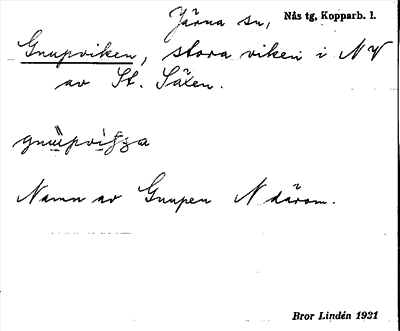 Järna sn, Nås tg, Kopparb. l.
Gnupviken, stora viken i NV
av St. Sälen.
Namn av Gnupen N därom.
Bror Lindén 1931